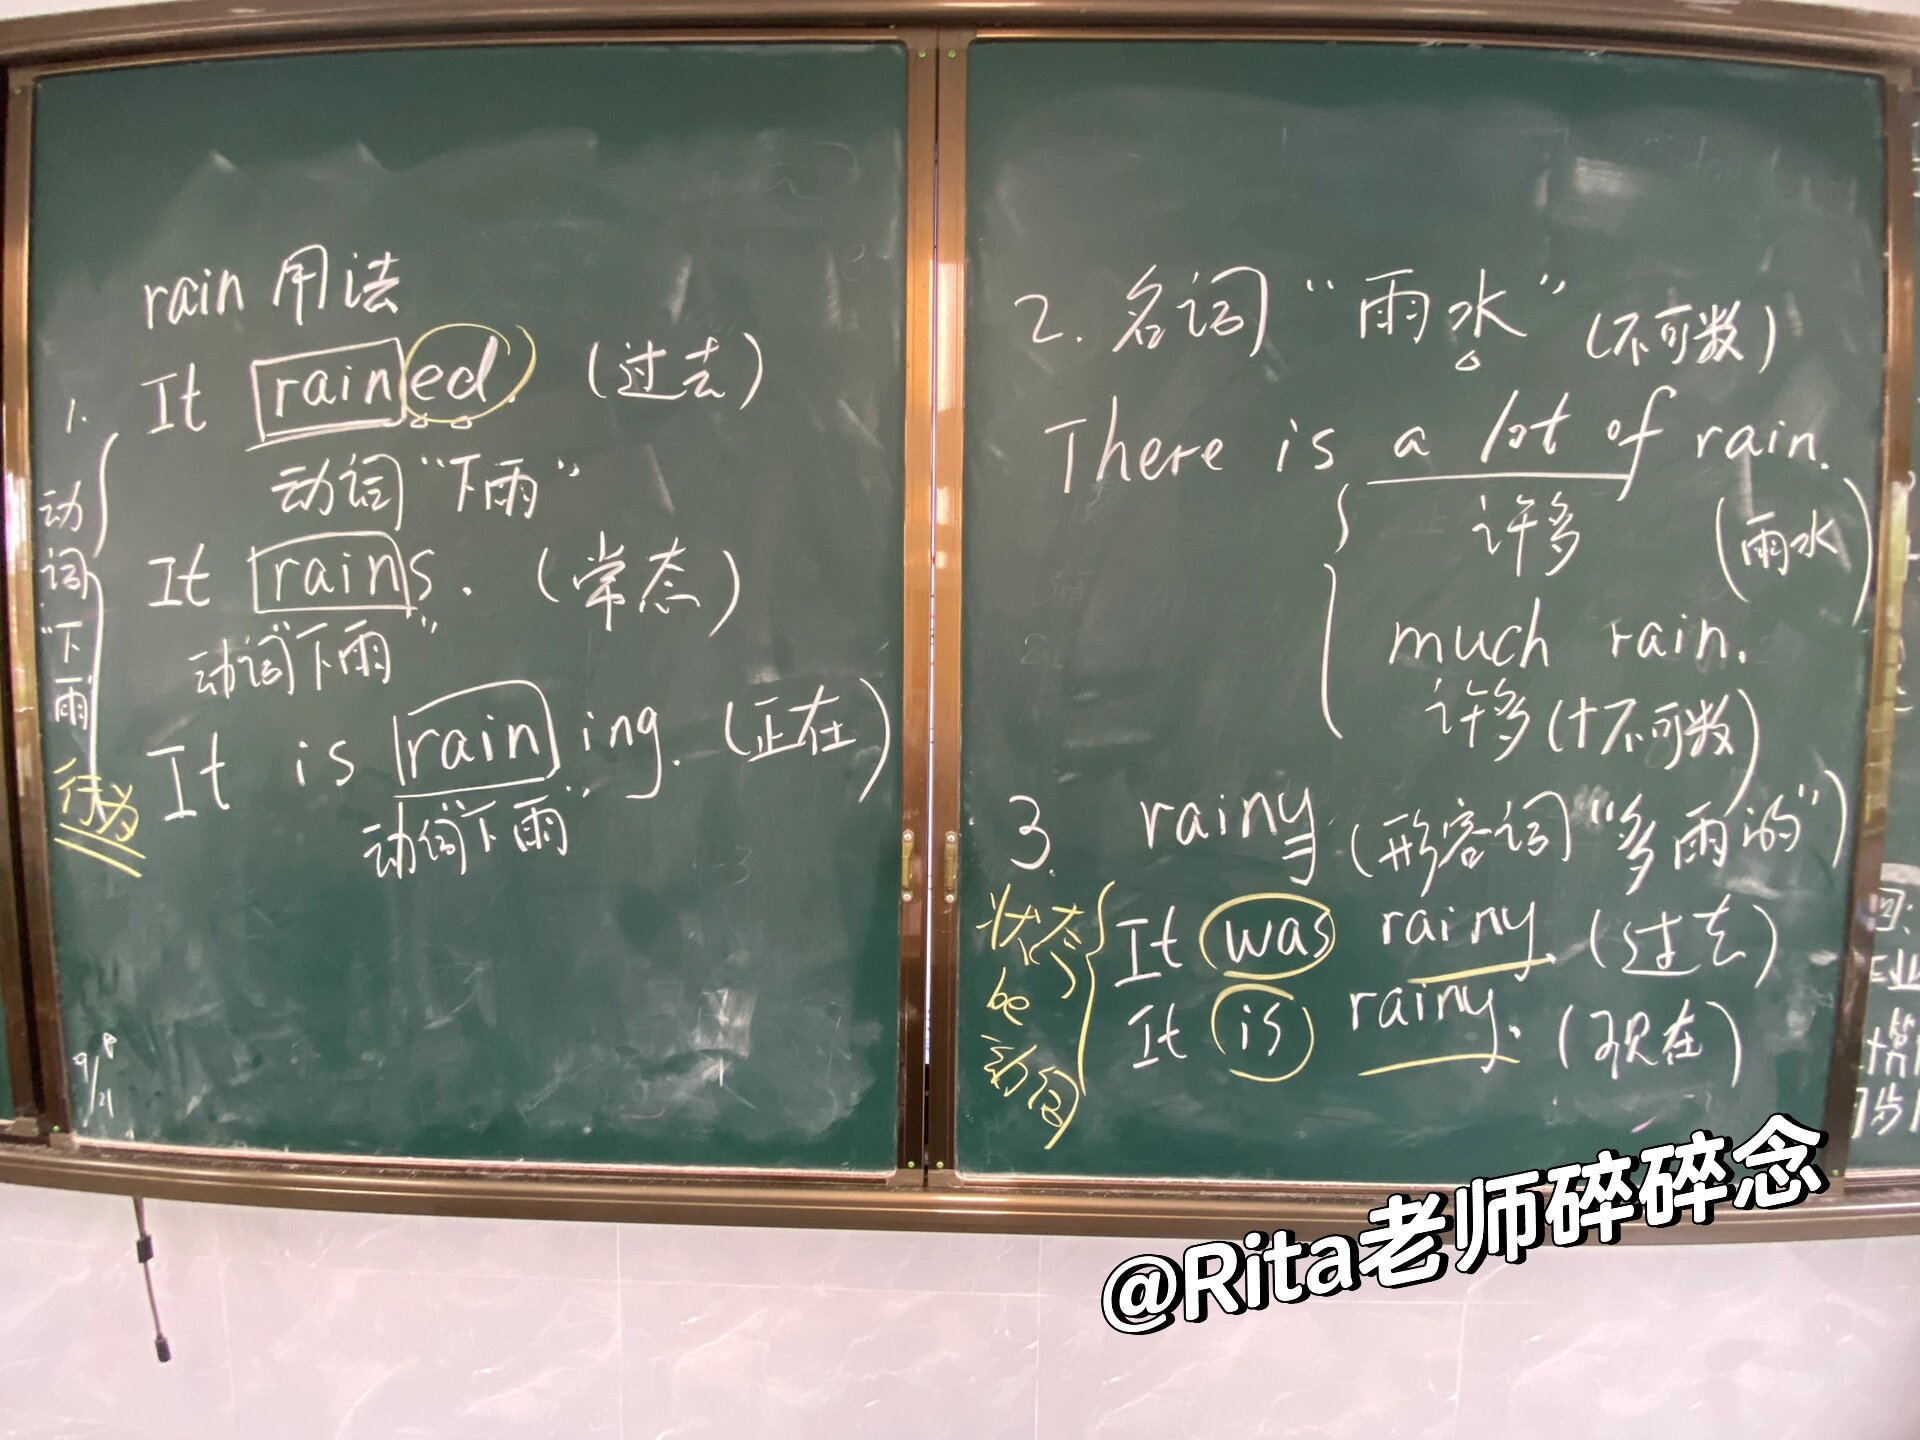 rain 用法
1. It rained. (过去)
动词“下雨”
It rains. (常态)
动词“下雨”
It is raining. (正在)
动词“下雨”
动词“下雨”
行为
2. 名词“雨水”(不可数)
There is a lot of rain.
许多 (雨水)
much rain.
许多(+不可数)
3. rainy (形容词“多雨的”)
It was rainy. (过去)
It is rainy. (现在)
状态
be
动词
@Rita老师碎碎念